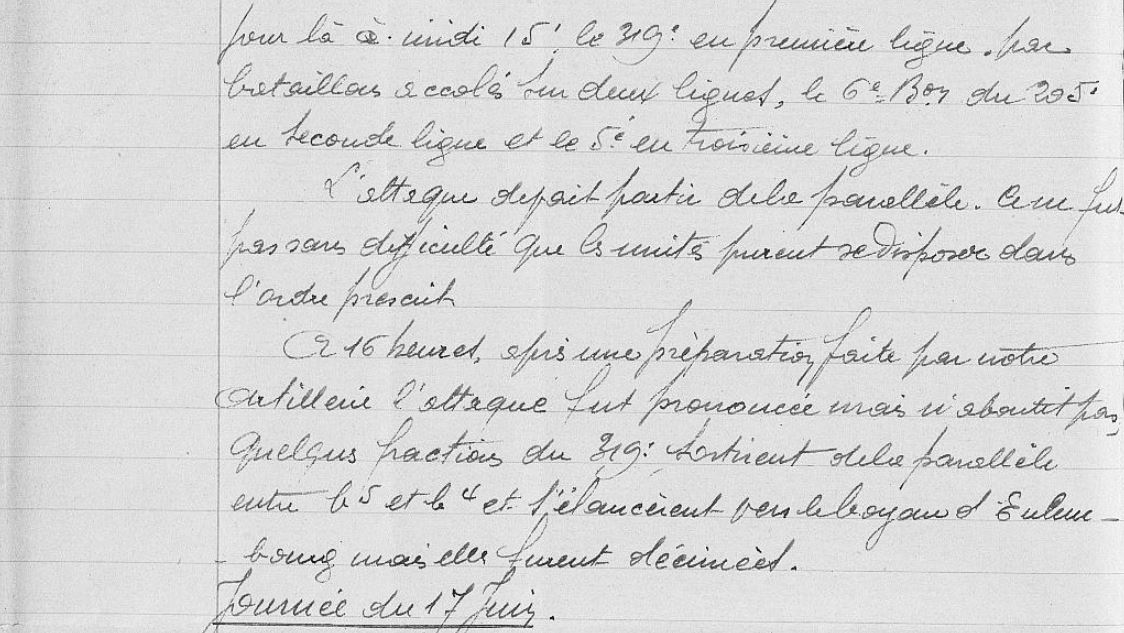 pour là à midi 15', le 319e en première ligne, par
bataillons accolés sur deux lignes, le 6e Bon du 205e
en seconde ligne et le 5e en troisième ligne.
L'attaque devait partir de la parallèle. Ce ne fut
pas sans difficulté que les unités purent se disposer dans
l'ordre prescrit
A 16 heures, après une préparation faite par notre
artillerie l'attaque fut prononcée mais n'aboutit pas,
Quelques fractions du 319e sortirent de la parallèle
entre b5 et b4 et s'élancèrent vers le boyau d'Eulem-
-bourg mais elles furent décimées.
Journée du 17 Juin.